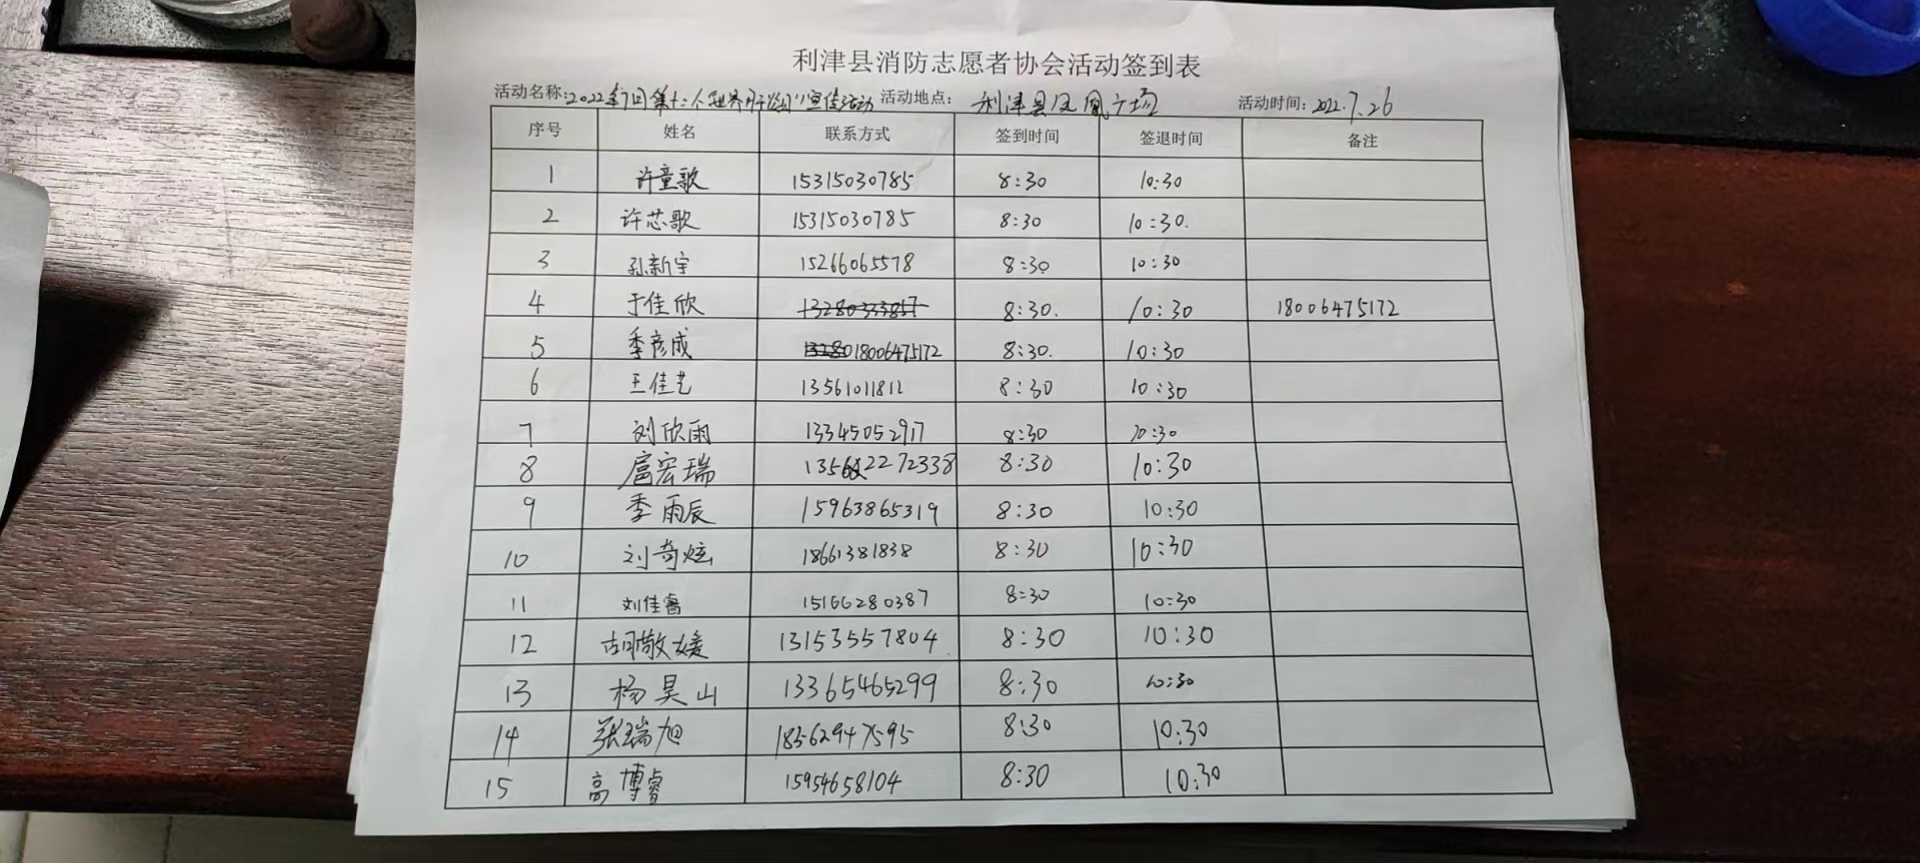 利津县消防志愿者协会活动签到表
活动名称: 2022年7月第十二个世界肝炎日"宣传活动 活动地点: 利津县凤凰广场 活动时间: 2022.7.26
序号 姓名 联系方式 签到时间 签退时间 备注
1 许童歌 15315030785 8:30 10:30
2 许芯歌 15315030785 8:30 10:30.
3 孙新宇 15266065578 8:30 10:30
4 于佳欣 13280333857 8:30. 10:30 18006475172
5 季彦成 18006475172 8:30. 10:30
6 王佳艺 13561011812 8:30 10:30
7 刘欣雨 13345052917 8:30 10:30
8 扈宏瑞 8:30 10:30
9 季雨辰 15963865319 8:30 10:30
10 刘奇炫 18661381838 8:30 10:30
11 刘佳睿 15166280387 8:30 10:30
12 胡敬媛 13153557804 8:30 10:30
13 杨昊山 13365465299 8:30 10:30
14 张瑞旭 18562947595 8:30 10:30
15 高博睿 15954658104 8:30 10:30